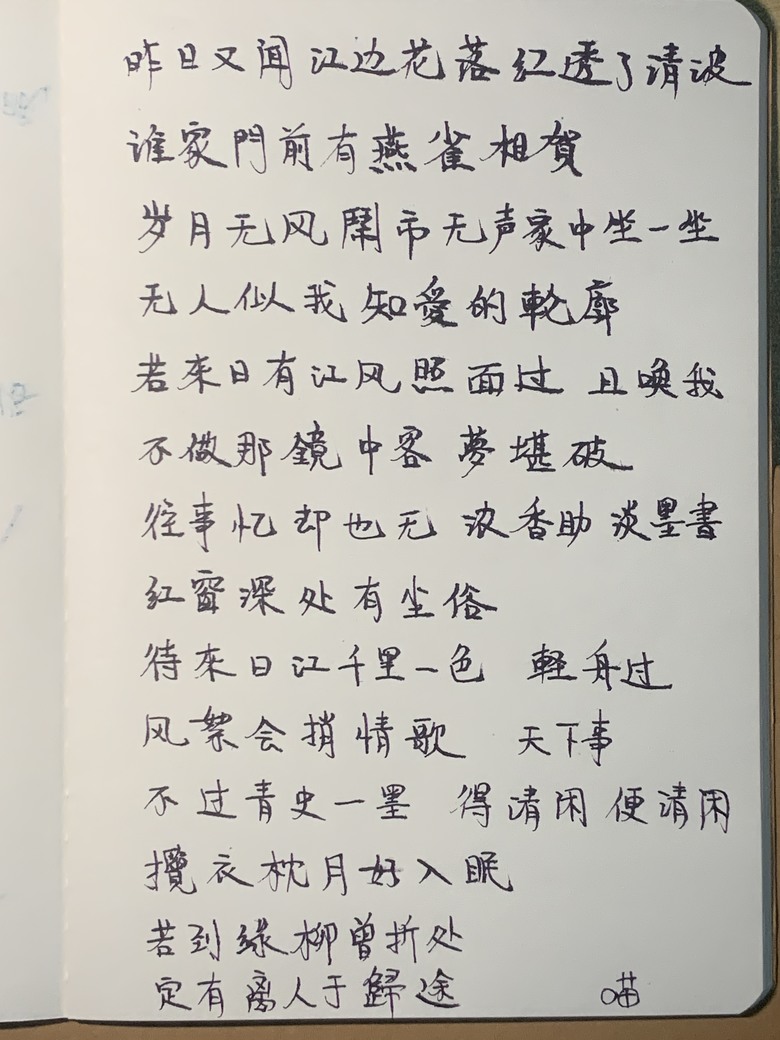 昨日又闻江边花落红透了清波
谁家門前有燕雀相賀
岁月无风鬧市无声家中坐一坐
无人似我知愛的輪廓
若来日有江风照面过 且唤我
不做那鏡中客 夢堪破
往事忆却也无 浓香助淡墨書
红窗深处有尘俗
待来日江千里一色 軽舟过
风絮会捎情歌 天下事
不过青史一墨 得清闲便清闲
攬衣枕月好入眠
若到緑柳曾折处
定有离人于歸途
喵